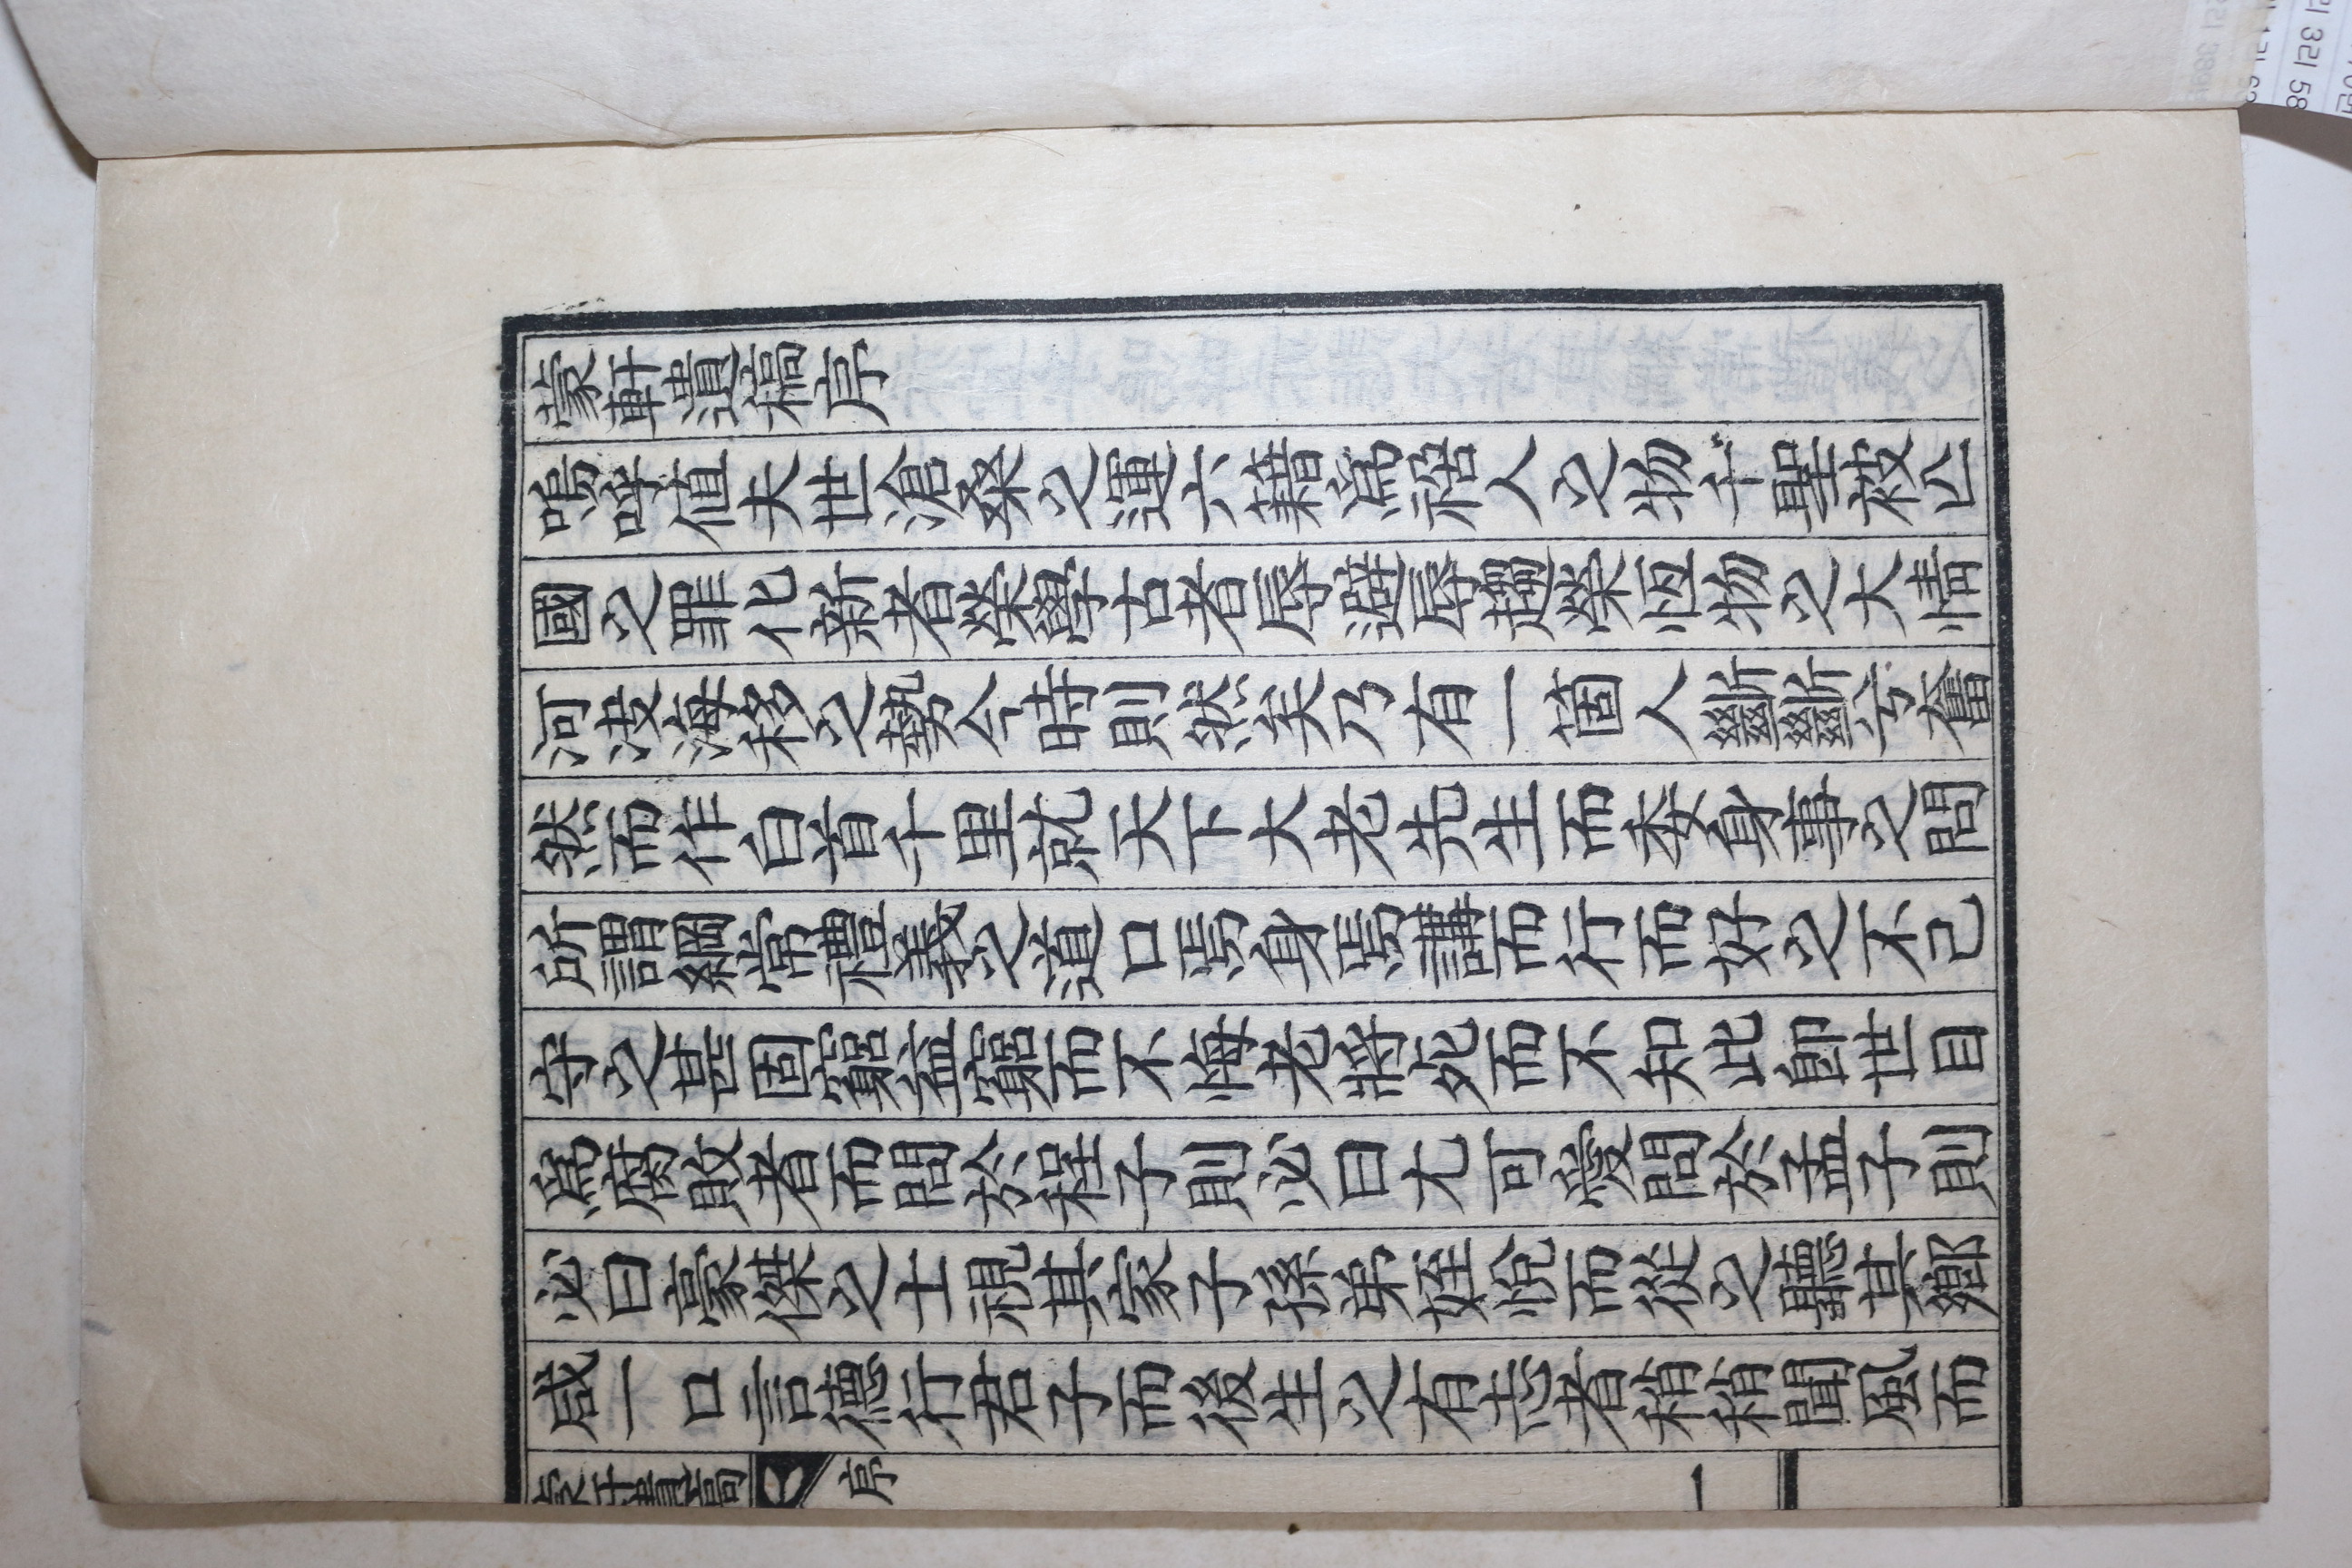 蒙軒遺稿序
嗚呼値夫世滄桑之運六籍爲楛人之物千聖被亾
國之罪化新者榮學古者辱避辱趨榮恆物之大情
河决海移之勢今時則然矣乃有一箇人斷斷兮奮
然而作白首千里就天下大老先生而委身事之問
所謂綱常禮義之道口焉身焉講而行而好之不己
守之甚固窮益窮而不悔老將死而不知此卽世目
爲腐敗者而問於程子則必曰尤可愛問於孟子則
必曰豪傑之士視其家子孫弟姪悅而從之聽其鄕
咸一口言德行君子而後生之有志者稍稍聞風而
蒙軒遺稿
序
一